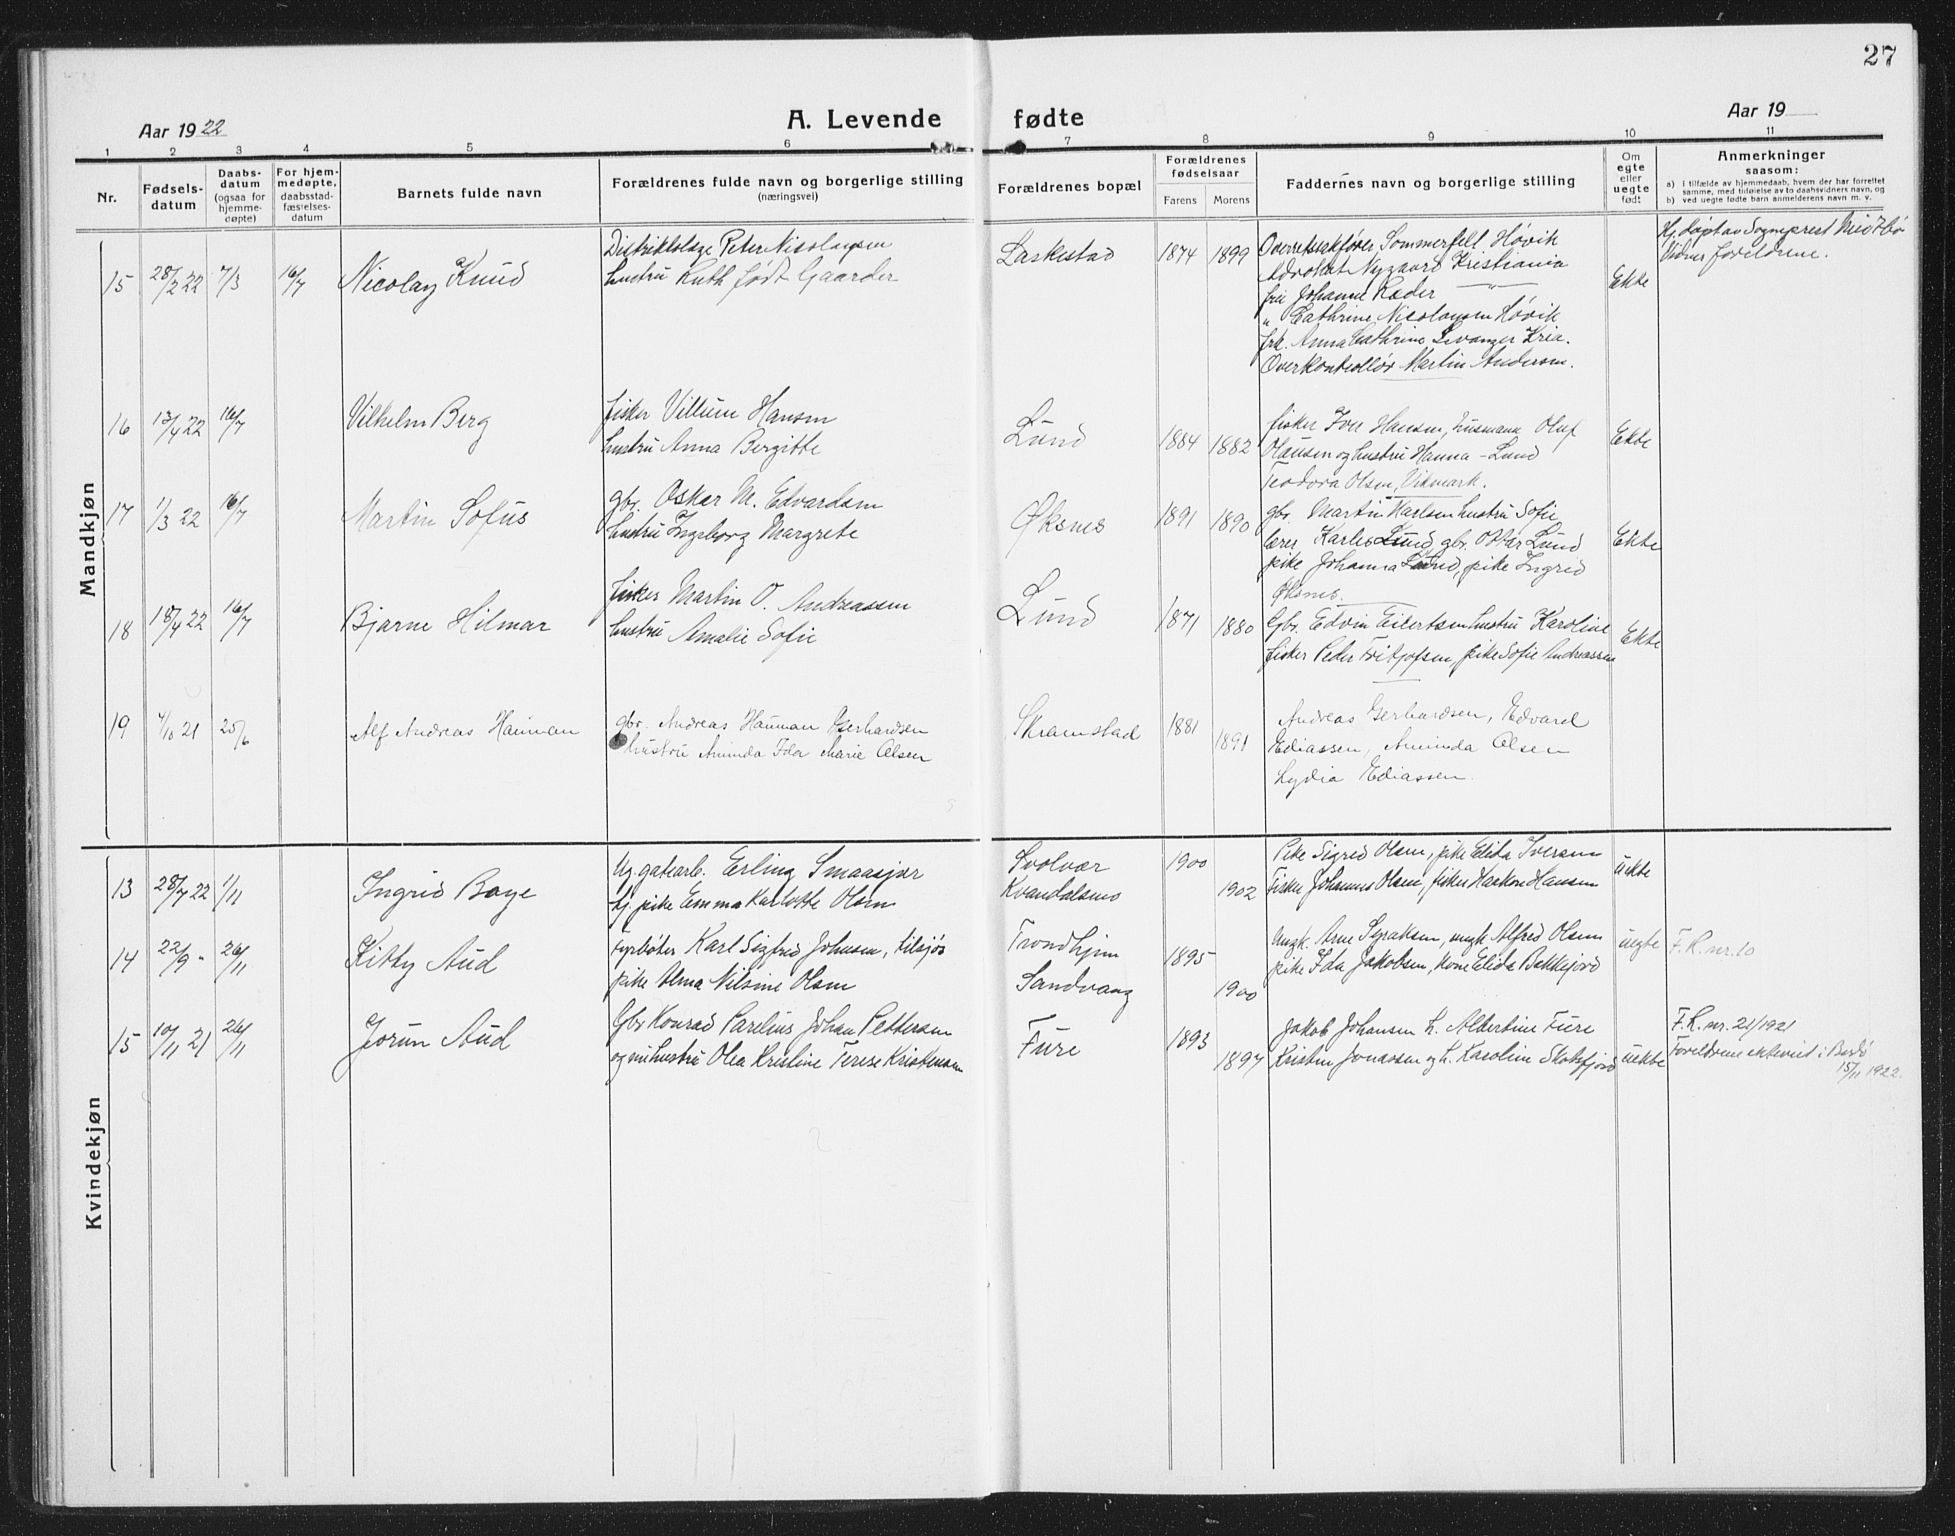 27
Aar 1922
A. Levende fødte
Aar 19
1 2 3 4 5 6 7 8 9 10 11
Nr.
Fødsels-
datum
Daabs-
datum
(ogsaa for
hjemme-
døpte)
For hjem-
medøpte,
daabsstad-
fæstelses-
datum
Barnets fulde navn
Forældrenes fulde navn og borgerlige stilling
(næringsvei)
Forældrenes bopæl
Forældrenes
fødselsaar
Farens Morens
Faddernes navn og borgerlige stilling
Om
egte
eller
uegte
født
Anmerkninger
saasom:
a) i tilfælde av hjemmedaab, hvem der har forrettet
samme, med tilføielse av to daabsvidners navn, og
b) ved uegte fødte barn anmelderens navn m. v.
Mandkjøn
15 28/2 22 7/3 16/7 Nicolay Knud
Distriktslæge Peter Nicolaysen
hustru Ruth født Gaarder
Laskestad 1874 1899
Overretssakfører Sommerfelt Høvik
Advokat Nygaard Kristiania
frü Johanne Ræder —"—
" Cathrine Nicolaysen Høvik
frk. Anna Cathrine Levanger Kria.
Overkontrollør Martin Andersen.
Ekte
Hj. døpt av Sogneprest Midtbø
Vidner foreldrene.
16 13/4 22 16/7 Vilhelm Berg
fisker Villum Hansen
hustru Anna Bergitte
Lund 1884 1882
fisker Hansen, husmann Oluf
Olausen og hustru Hanna - Lund
Teodora Olsen, Vikmark.
Ekte
17 1/3 22 16/7 Martin Sofus
gbr. Oskar M. Edvardsen
hustru Ingeborg Margrete
Øksnes 1891 1890
gbr. Martin Karlsen hustru Sofie
lærer Karl Lund gbr. Ottar Lund
pike Johanna Lund, pike Ingrid
Øksnes.
Ekte
18 18/4 22 16/7 Bjarne Hilmar
fisker Martin O. Andreassen
hustru Amalie Sofie
Lund 1871 1880
Gbr. Edvin Eilertsen hustru Karoline
fisker Peder Fritjofsen, pike Sofie Andreassen
Ekte
19 4/10 21 25/6 Alf Andreas Hauman
gbr. Andreas Hauman Gerhardsen
hustru Aminda Ida Marie Olsen
Skramstad 1881 1891
Andreas Gerhardsen, Edvard
Ediassen, Aminda Olsen
Lydia Ediassen.
Kvindekjøn
13 28/7 22 1/11 Ingrid Boye
Ug. gatearb. Erling Smaasjør
hj. pike Emma Karlotte Olsen
Svolvær
Kvandalsnes
1900 1902
Pike Sigred Olsen, pike Elida Iversen
Fisker Johannes Olsen, fisker Haakon Hansen
uekte
14 22/9 " 26/11 Kitty Aud
Fyrbøter Karl Sigfred Johnsen, tilsjøs
pike Alma Nilsine Olsen
Trondhjem
Sandvang
1895 1900
Ungk. Arne Syraksen, ungk. Alfred Olsen
pike Ida Jakobsen, kone Elida Bakkejord
uegte
F. R. nr. 10
15 10/11 21 26/11 Jorun Aud
Gbr Konrad Parelius Johan Pettersen
og hustru Olea Kristine Terese Kristensen
Fure 1893 1897
Jakob Johansen h. Albertine Fure
Kristen Jonassen og h. Karoline Skotsfjord
uekte
F. R. nr. 21/1921
Foreldrene ekteviet i Bodø
15/11 1922.